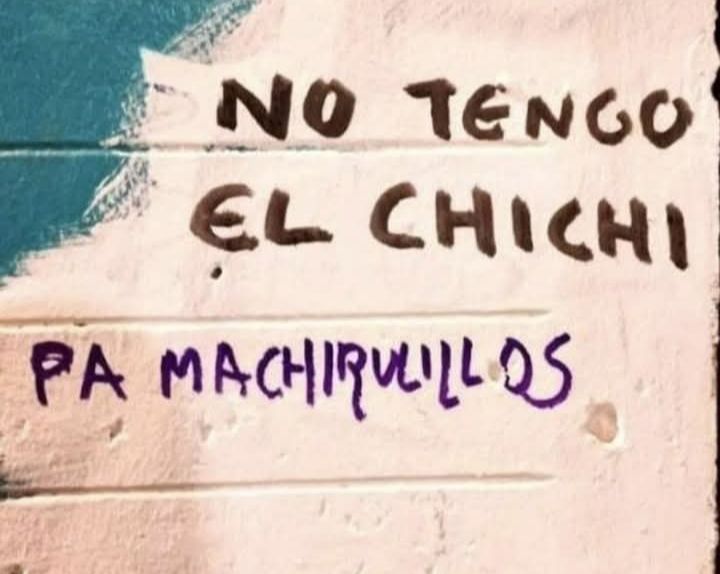 NO TENGO
EL CHICHI
PA MACHIRULILLOS